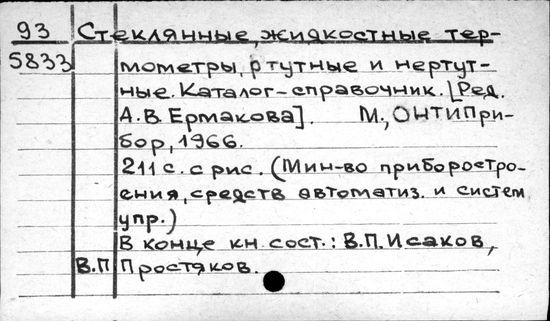 93 Стеклянные, жидкостные тер-
5833 мометры, ртутные и нертут-
ные. Каталог-справочник. [Ред.
А.В. Ермакова]. М., ОНТИПри-
бор, 1966.
211 с. с рис. (Мин-во приборостро-
ения, средств автоматиз. и систем
упр.)
В конце кн. сост.: В.П. Исаков,
В.П Простяков.